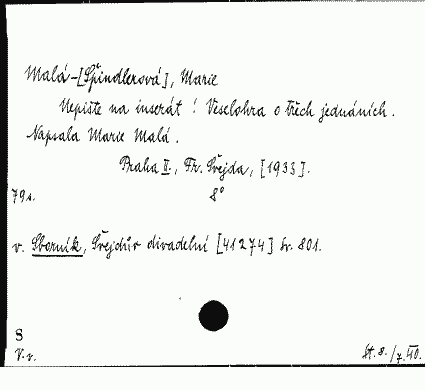 Malá-[Špindlerová], Marie
Nepište na inserát! Veselohra o třech jednáních.
Napsala Marie Malá.
Praha II., Fr. Švejda, [1933].
79 s. 8°
v. Sborník, Švejdův divadelní [41274] sv. 801.
S
V.v. St. 8./7.VII.